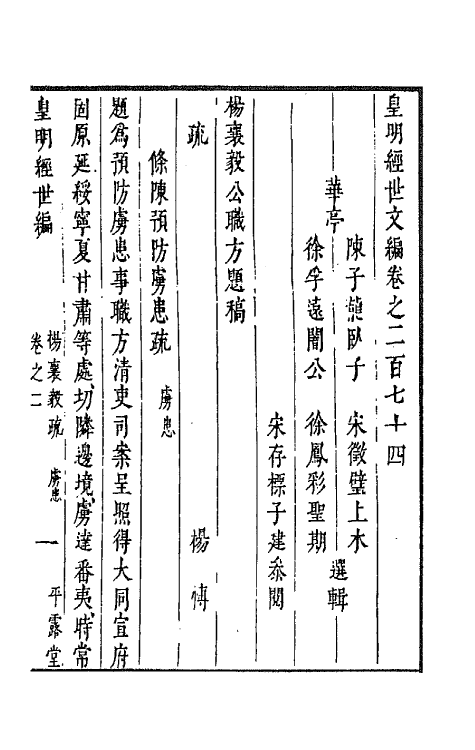 皇明經世文編卷之二百七十四
華亭
陳子龍臥子 宋徵璧上木
徐孚遠闇公 徐鳳彩聖期
選輯
宋存標子建叅閱
楊襄毅公職方題稿
疏 楊博
條陳預防虜患疏 虜患
題爲預防虜患事職方清吏司案呈照得大同宣府
固原延綏寧夏甘肅等處切隣邊境虜達番夷時常
皇明經世編
楊襄毅疏 虜患
卷之二 一 平露堂